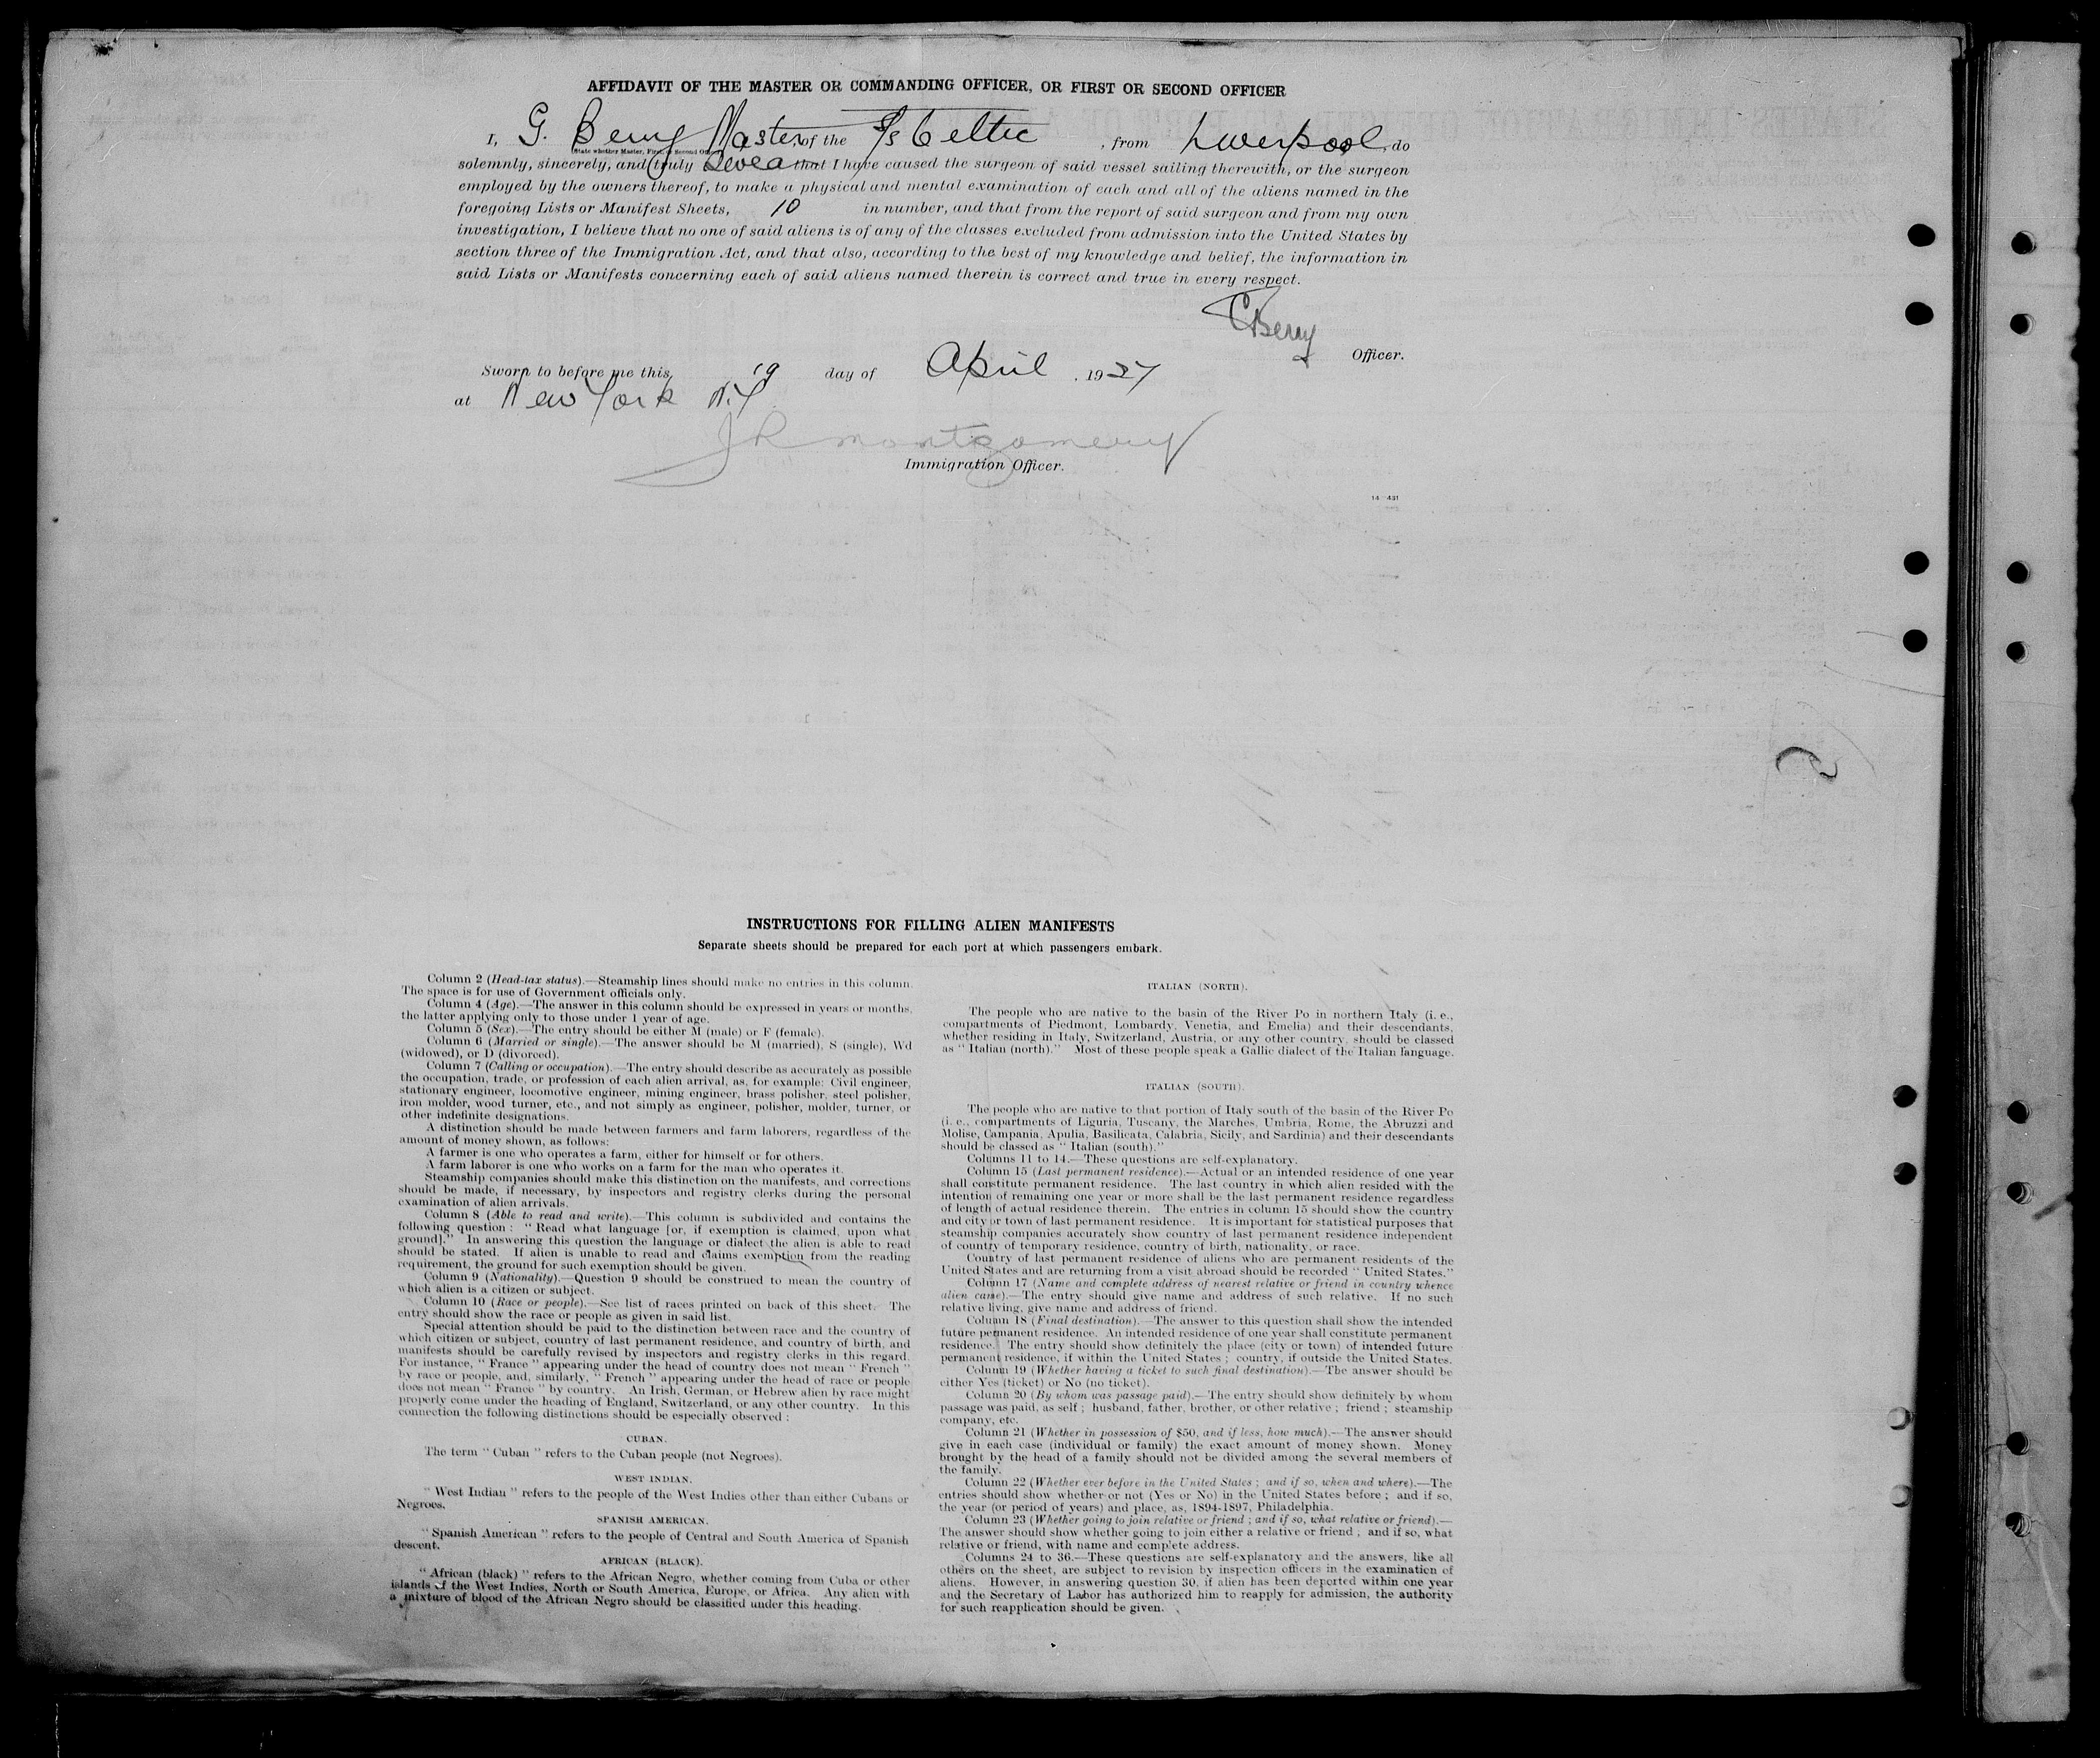 AFFIDAVIT OF THE MASTER OR COMMANDING OFFICER, OR FIRST OR SECOND OFFICER
I, G. Berry Master of the S/s Celtic, from Liverpool, do
(State whether Master, First, or Second Officer)
solemnly, sincerely, and truly that I have caused the surgeon of said vessel sailing therewith, or the surgeon
employed by the owners thereof, to make a physical and mental examination of each and all of the aliens named in the
foregoing Lists or Manifest Sheets, 10 in number, and that from the report of said surgeon and from my own
investigation, I believe that no one of said aliens is of any of the classes excluded from admission into the United States by
section three of the Immigration Act, and that also, according to the best of my knowledge and belief, the information in
said Lists or Manifests concerning each of said aliens named therein is correct and true in every respect.
Berry
Officer.
Sworn to before me this 19 day of April, 1927
at New York N.Y.
J R Montgomery
Immigration Officer.
14—431
INSTRUCTIONS FOR FILLING ALIEN MANIFESTS
Separate sheets should be prepared for each port at which passengers embark.
Column 2 (Head-tax status).—Steamship lines should make no entries in this column.
The space is for use of Government officials only.
Column 4 (Age).—The answer in this column should be expressed in years or months,
the latter applying only to those under 1 year of age.
Column 5 (Sex).—The entry should be either M (male) or F (female).
Column 6 (Married or single).—The answer should be M (married), S (single), Wd
(widowed), or D (divorced).
Column 7 (Calling or occupation).—The entry should describe as accurately as possible
the occupation, trade, or profession of each alien arrival, as, for example: Civil engineer,
stationary engineer, locomotive engineer, mining engineer, brass polisher, steel polisher,
iron molder, wood turner, etc., and not simply as engineer, polisher, molder, turner, or
other indefinite designations.
A distinction should be made between farmers and farm laborers, regardless of the
amount of money shown, as follows:
A farmer is one who operates a farm, either for himself or for others.
A farm laborer is one who works on a farm for the man who operates it.
Steamship companies should make this distinction on the manifests, and corrections
should be made, if necessary, by inspectors and registry clerks during the personal
examination of alien arrivals.
Column 8 (Able to read and write).—This column is subdivided and contains the
following question: "Read what language [or, if exemption is claimed, upon what
ground]." In answering this question the language or dialect the alien is able to read
should be stated. If alien is unable to read and claims exemption from the reading
requirement, the ground for such exemption should be given.
Column 9 (Nationality).—Question 9 should be construed to mean the country of
which alien is a citizen or subject.
Column 10 (Race or people).—See list of races printed on back of this sheet. The
entry should show the race or people as given in said list.
Special attention should be paid to the distinction between race and the country of
which citizen or subject, country of last permanent residence, and country of birth, and
manifests should be carefully revised by inspectors and registry clerks in this regard.
For instance, "France" appearing under the head of country does not mean "French"
by race or people, and, similarly, "French" appearing under the head of race or people
does not mean "France" by country. An Irish, German, or Hebrew alien by race might
properly come under the heading of England, Switzerland, or any other country. In this
connection the following distinctions should be especially observed:
CUBAN.
The term "Cuban" refers to the Cuban people (not Negroes).
WEST INDIAN.
"West Indian" refers to the people of the West Indies other than either Cubans or
Negroes.
SPANISH AMERICAN.
"Spanish American" refers to the people of Central and South America of Spanish
descent.
AFRICAN (BLACK).
"African (black)" refers to the African Negro, whether coming from Cuba or other
islands of the West Indies, North or South America, Europe, or Africa. Any alien with
a mixture of blood of the African Negro should be classified under this heading.
ITALIAN (NORTH).
The people who are native to the basin of the River Po in northern Italy (i. e.,
compartments of Piedmont, Lombardy, Venetia, and Emelia) and their descendants,
whether residing in Italy, Switzerland, Austria, or any other country, should be classed
as "Italian (north)." Most of these people speak a Gallic dialect of the Italian language.
ITALIAN (SOUTH).
The people who are native to that portion of Italy south of the basin of the River Po
(i. e., compartments of Liguria, Tuscany, the Marches, Umbria, Rome, the Abruzzi and
Molise, Campania, Apulia, Basilicata, Calabria, Sicily, and Sardinia) and their descendants
should be classed as "Italian (south)."
Columns 11 to 14.—These questions are self-explanatory.
Column 15 (Last permanent residence).—Actual or an intended residence of one year
shall constitute permanent residence. The last country in which alien resided with the
intention of remaining one year or more shall be the last permanent residence regardless
of length of actual residence therein. The entries in column 15 should show the country
and city or town of last permanent residence. It is important for statistical purposes that
steamship companies accurately show country of last permanent residence independent
of country of temporary residence, country of birth, nationality, or race.
Country of last permanent residence of aliens who are permanent residents of the
United States and are returning from a visit abroad should be recorded "United States."
Column 17 (Name and complete address of nearest relative or friend in country whence
alien came).—The entry should give name and address of such relative. If no such
relative living, give name and address of friend.
Column 18 (Final destination).—The answer to this question shall show the intended
future permanent residence. An intended residence of one year shall constitute permanent
residence. The entry should show definitely the place (city or town) of intended future
permanent residence, if within the United States; country, if outside the United States.
Column 19 (Whether having a ticket to such final destination).—The answer should be
either Yes (ticket) or No (no ticket).
Column 20 (By whom was passage paid).—The entry should show definitely by whom
passage was paid, as self; husband, father, brother, or other relative; friend; steamship
company, etc.
Column 21 (Whether in possession of $50, and if less, how much).—The answer should
give in each case (individual or family) the exact amount of money shown. Money
brought by the head of a family should not be divided among the several members of
the family.
Column 22 (Whether ever before in the United States; and if so, when and where).—The
entries should show whether or not (Yes or No) in the United States before; and if so,
the year (or period of years) and place, as, 1894-1897, Philadelphia.
Column 23 (Whether going to join relative or friend; and if so, what relative or friend).—
The answer should show whether going to join either a relative or friend; and if so, what
relative or friend, with name and complete address.
Columns 24 to 36.—These questions are self-explanatory and the answers, like all
others on the sheet, are subject to revision by inspection officers in the examination of
aliens. However, in answering question 30, if alien has been deported within one year
and the Secretary of Labor has authorized him to reapply for admission, the authority
for such reapplication should be given.